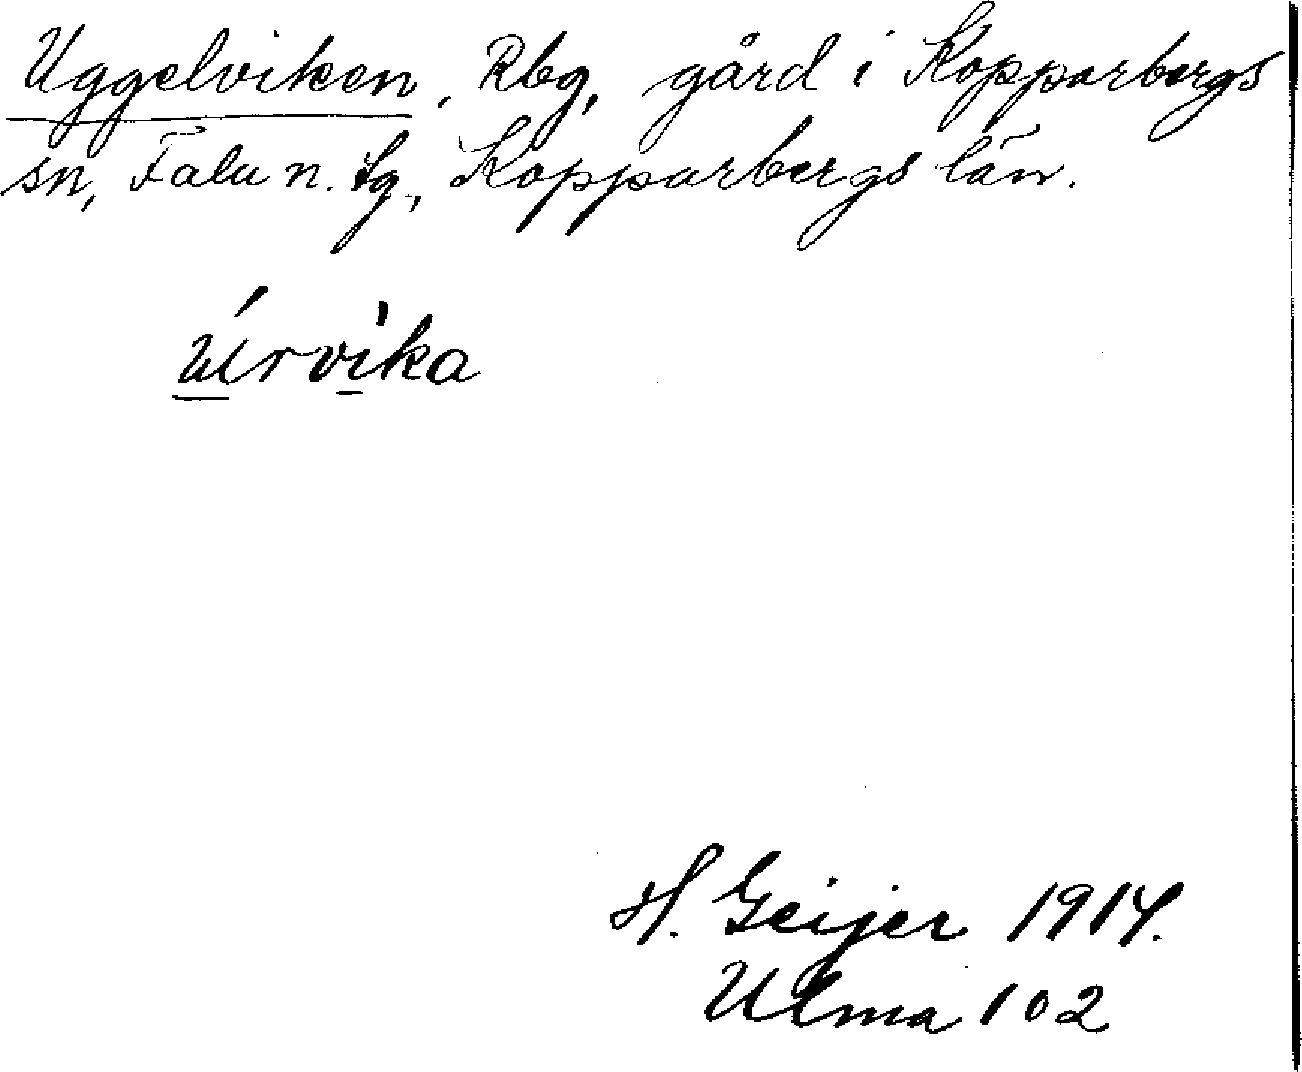 Uggelviken, Rbg, gård i Kopparbergs
sn, Falu n. tg, Kopparbergs län.
Úrvìka
H. Geijer 1914.
Ulma 102